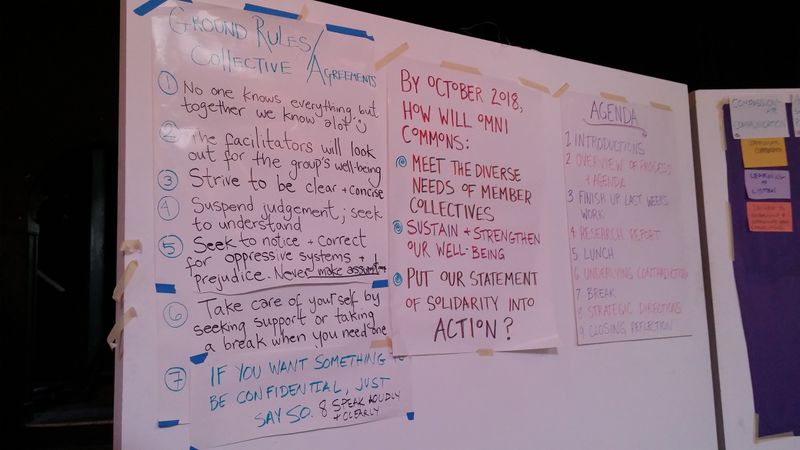 GROUND RULES/
COLLECTIVE AGREEMENTS
1 No one knows everything but
together we know alot
2 The facilitators will look
out for the group's well-being
3 Strive to be clear + concise
4 Suspend judgement; seek
to understand
5 Seek to notice + correct
for oppressive systems +
prejudice. Never make
6 Take care of yourself by
seeking support or taking
a break when you need one
7 IF YOU WANT SOMETHING TO
BE CONFIDENTIAL, JUST
SAY SO. 8 SPEAK LOUDLY
+ CLEARLY
BY OCTOBER 2018,
HOW WILL OMNI
COMMONS:
MEET THE DIVERSE
NEEDS OF MEMBER
COLLECTIVES
SUSTAIN + STRENGTHEN
OUR WELL-BEING
PUT OUR STATEMENT
OF SOLIDARITY INTO
ACTION?
AGENDA
1 INTRODUCTIONS
2 OVERVIEW OF PROCESS
+ AGENDA
3 FINISH UP LAST WEEK'S
WORK
4 RESEARCH REPORT
5 LUNCH
6 UNDERLYING CONTRADICTIONS
7 BREAK
8 STRATEGIC DIRECTIONS
9 CLOSING REFLECTION
COMMUNICATION